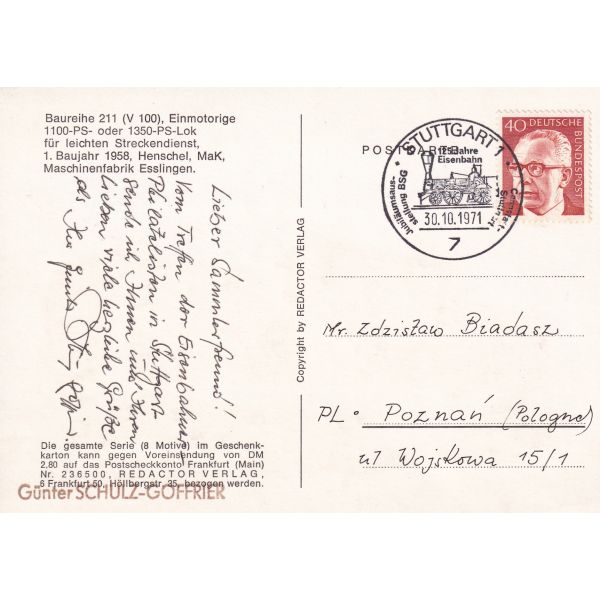 Baureihe 211 (V 100), Einmotorige
1100-PS- oder 1350-PS-Lok
für leichten Streckendienst,
1. Baujahr 1958, Henschel, MaK,
Maschinenfabrik Esslingen.
Lieber Sammlerfreund!
Vom Treffen der Eisenbahner
Philatelisten in Stuttgart
sende ich Ihnen und Ihren
Lieben viele herzliche Grüße
als Ihr Günter
Die gesamte Serie (8 Motive) im Geschenk-
karton kann gegen Voreinsendung von DM
2,80 auf das Postscheckkonto Frankfurt (Main)
Nr 236500, REDACTOR VERLAG,
6 Frankfurt 50, Höllbergstr. 35, bezogen werden.
Günter SCHULZ-GÖFFRIER
Copyright by REDACTOR VERLAG
POSTKARTE
STUTTGART 1
125 Jahre
Eisenbahn
Jubiläumsaus-
stellung BSG
30.10.1971
7
40 DEUTSCHE
BUNDESPOST
Mr. Zdzisław Biadasz
PL - Poznań (Pologne)
ul Wojskowa 15/1